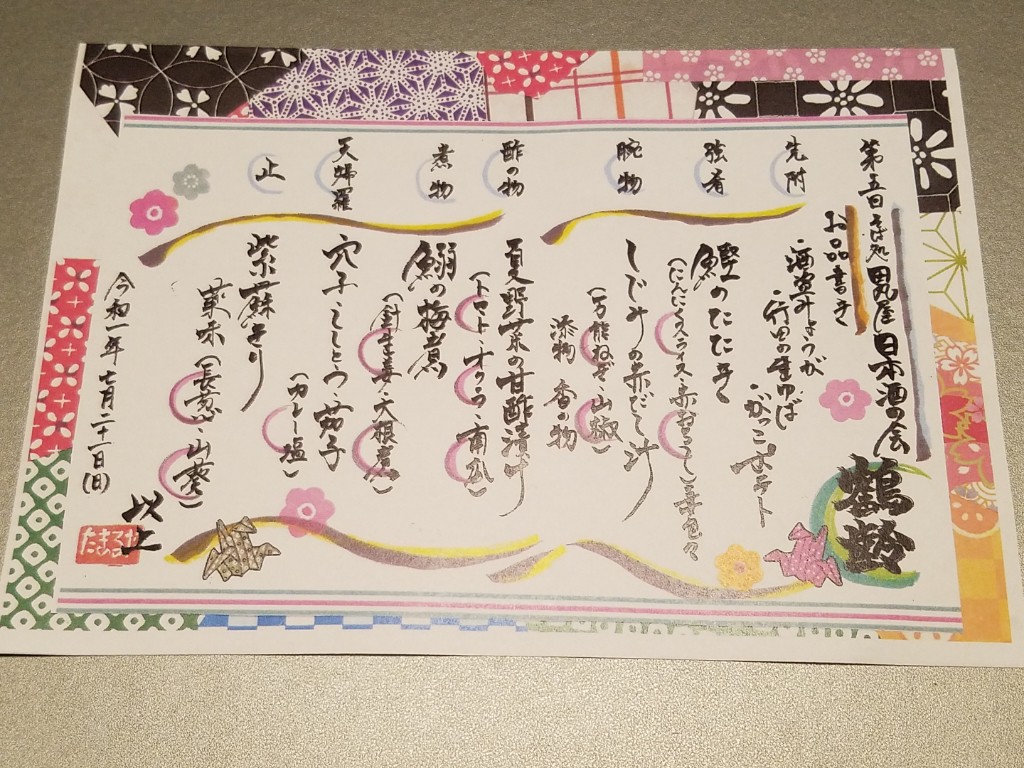 第五回 そば処 男屋 日本酒の会
鶴齢
お品書き
先附
酒盗 みょうが
行田の生ゆば
がっこポテト
強肴
鰹のたたき
(にんにくスライス・赤おろし)妻色々
椀物
しじみの赤だし汁
(万能ねぎ・山椒)
添物 香の物
酢の物
夏野菜の甘酢漬け
(トマト・オクラ・南瓜)
煮物
鰯の梅煮
(針生姜・大根煮)
天婦羅
穴子・ししとう・茄子
(カレー塩)
止
紫蘇きり
薬味(長葱・山葵)
以上
令和一年七月二十一日(日)